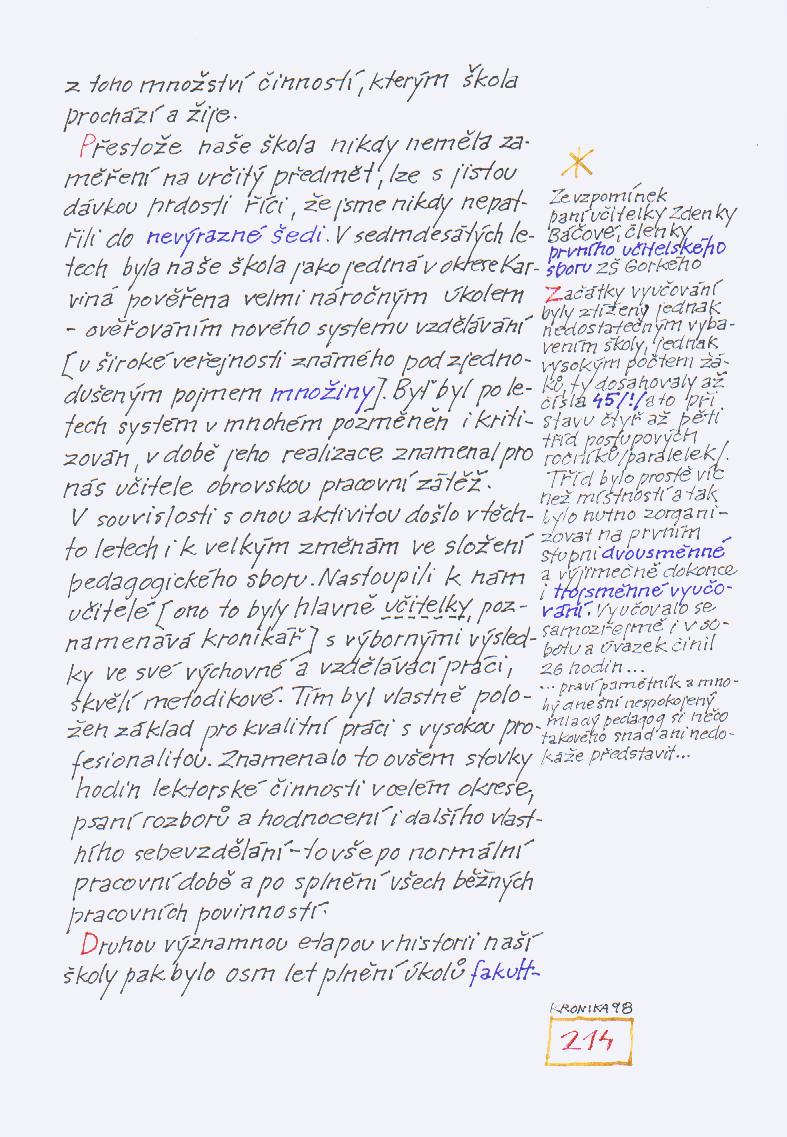 z toho množství činností, kterým škola
prochází a žije.
Přestože naše škola nikdy neměla za-
měření na určitý předmět, lze s jistou
dávkou hrdosti říci, že jsme nikdy nepat-
řili do nevýrazné šedi. V sedmdesátých le-
tech byla naše škola jako jediná v okrese Kar-
viná pověřena velmi náročným úkolem
- ověřováním nového systemu vzdělávání
[v široké veřejnosti známého pod zjedno-
dušeným pojmem množiny]. Byť byl po le-
tech systém v mnohém pozměněn i kriti-
zován, v době jeho realizace znamenal pro
nás učitele obrovskou pracovní zátěž.
V souvislosti s onou aktivitou došlo v těch-
to letech i k velkým změnám ve složení
pedagogického sboru. Nastoupili k nám
učitelé [ono to byly hlavně učitelky, poz-
namenává kronikář] s výbornými výsled-
ky ve své výchovné a vzdělávací práci,
skvělí metodikové. Tím byl vlastně polo-
žen základ pro kvalitní práci s vysokou pro-
fesionalitou. Znamenalo to ovšem stovky
hodin lektorské činnosti v celém okrese,
psaní rozborů a hodnocení i dalšího vlast-
ního sebevzdělání - to vše po normální
pracovní době a po splnění všech běžných
pracovních povinností.
Druhou významnou etapou v historii naší
školy pak bylo osm let plnění úkolů fakult-
Ze vzpomínek
paní učitelky Zdenky
Báčové, členky
prvního učitelského
sboru ZŠ Gorkého
Začátky vyučování
byly ztíženy jednak
nedostatečným vyba-
vením školy, jednak
vysokým počtem žá-
ků, ty dosahovaly až
čísla 45/!/ a to při
stavu čtyř až pěti
tříd postupových
ročníků/paralelek/.
Tříd bylo prostě víc
než místností a tak
bylo nutno zorgani-
zovat na prvním
stupni dvousměnné
a výjimečně dokonce
i trojsměnné vyučo-
vání. Vyučovalo se
samozřejmě i v so-
botu a úvazek činil
26 hodin...
... praví pamětník a mno-
hý dnešní nespokojený
mladý pedagog si něco
takového snad ani nedo-
káže představit...
KRONIKA 98
214